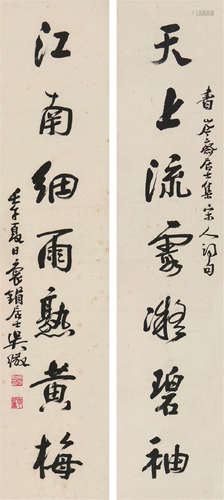 天上流霞凝碧袖
書 居齋居士集宋人詞句
江南細雨熟黃梅
壬午夏日 居士吳徵